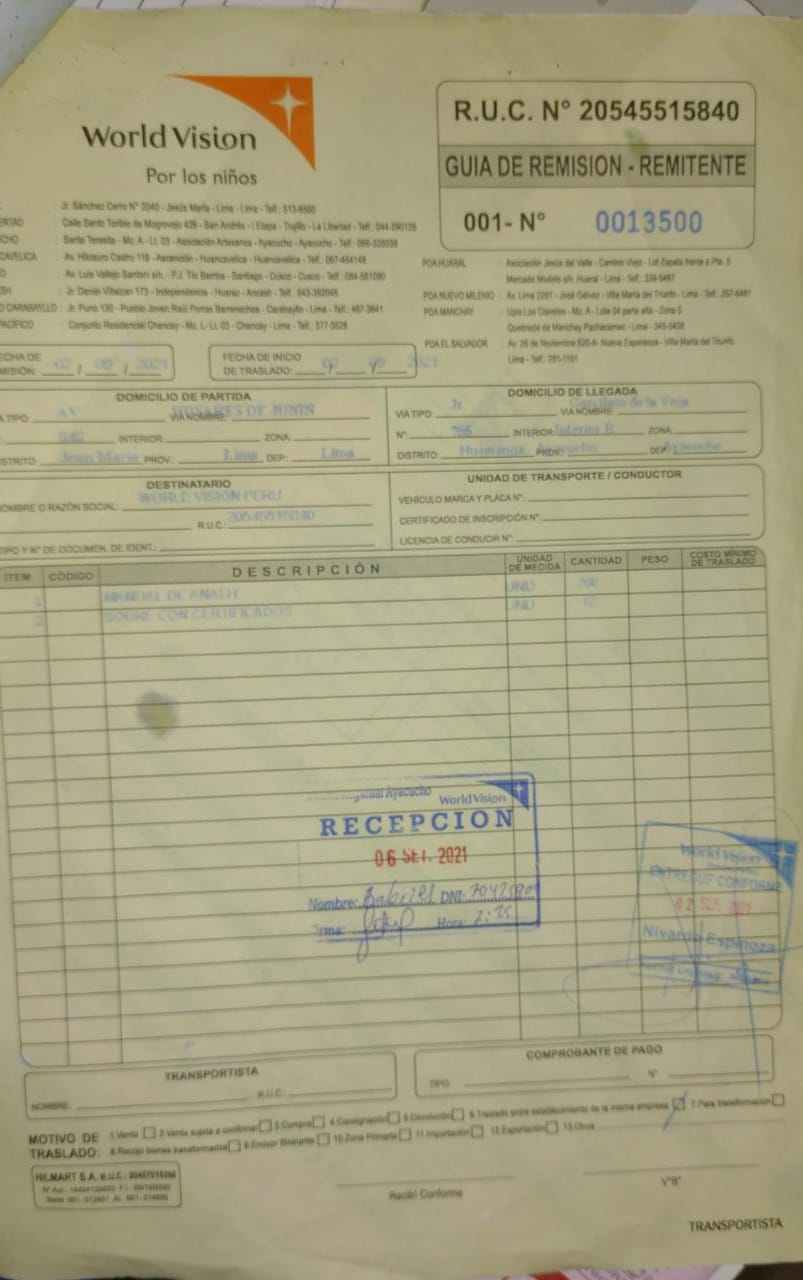 World Vision
Por los niños
R.U.C. N° 20545515840
GUIA DE REMISION - REMITENTE
001- N° 0013500
: Jr. Sánchez Cerro N° 2040 - Jesús María - Lima - Lima - Telf.: 513-6500
: Calle Santo Toribio de Mogrovejo 426 - San Andrés - I Etapa - Trujillo - La Libertad - Telf.:
: Santa Teresita - Mz. A - Lt. 03 - Asociación Artesanos - Ayacucho - Ayacucho - Telf.:
: Av. Hildauro Castro 118 - Ascención - Huancavelica - Huancavelica - Telf.: 067-454148
: Av. Luis Vallejo Santoni s/n. - P.J. Tío Bamba - Santiago - Cusco - Cusco - Telf.:
: Jr. Daniel Villaizan 173 - Independencia - Huaraz - Ancash - Telf.:
CARABAYLLO : Jr. Puno 130 - Pueblo Joven Raúl Porras Barrenechea - Carabayllo - Lima - Telf.:
PACÍFICO : Conjunto Residencial Chancay - Mz. L- Lt. 03 - Chancay - Lima - Telf.:
PDA HUARAL : Asociación Jesús del Valle - Camino Viejo - Lot Zapata frente a Pta. 5
Mercado Modelo s/n. Huaral - Lima - Telf.:
PDA NUEVO MILENIO : Av. Lima 2281 - José Gálvez - Villa María del Triunfo - Lima - Telf.:
PDA MANCHAY : Upis Los Claveles - Mz. A - Lote 04 parte alta - Zona 5
Quebrada de Manchay Pachacamac - Lima -
PDA EL SALVADOR : Av. 26 de Noviembre 820-A- Nueva Esperanza - Villa María del Triunfo
Lima - Telf.: 291-1101
FECHA DE INICIO
DE TRASLADO: 02 / 09 / 2021
DOMICILIO DE PARTIDA
VIA TIPO: AV VIA NOMBRE: HUSARES DE JUNIN
INTERIOR: ZONA:
Jesus Maria PROV.: Lima DEP.: Lima
DOMICILIO DE LLEGADA
VIA TIPO: Jr VIA NOMBRE: Garcilaso de la Vega
N°: INTERIOR: Interior B ZONA:
DISTRITO: Huamanga PROV.: Ayacucho DEP.: Ayacucho
DESTINATARIO
NOMBRE O RAZÓN SOCIAL: WORLD VISION PERU
R.U.C.: 20545515840
TIPO Y N° DE DOCUMEN. DE IDENT.:
UNIDAD DE TRANSPORTE / CONDUCTOR
VEHÍCULO MARCA Y PLACA N°:
CERTIFICADO DE INSCRIPCIÓN N°:
LICENCIA DE CONDUCIR N°:
ITEM CÓDIGO DESCRIPCIÓN UNIDAD DE MEDIDA CANTIDAD PESO COSTO MÍNIMO DE TRASLADO
1 MANUAL DE ANALIT UND
2 SOBRE CON CERTIFICADOS UND 12
Regional Ayacucho World Vision
RECEPCION
06 SET. 2021
Nombre: Gabriel DNI:
Firma: Hora: 2:25
World Vision
ENTREGUE CONFORME
02 SEP. 2021
Nivardo Espinoza
TRANSPORTISTA
NOMBRE: R.U.C.:
COMPROBANTE DE PAGO
TIPO N°
MOTIVO DE TRASLADO:
1.Venta 2.Venta sujeta a confirmar 3.Compra 4.Consignación 5.Devolución 6.Traslado entre establecimiento de la misma empresa 7.Para transformación
8.Recojo bienes transformados 9.Emisor Itinerante 10.Zona Primaria 11.Importación 12.Exportación 13.Otros
HILMART S.A. R.U.C.:
Recibí Conforme
V°B°
TRANSPORTISTA